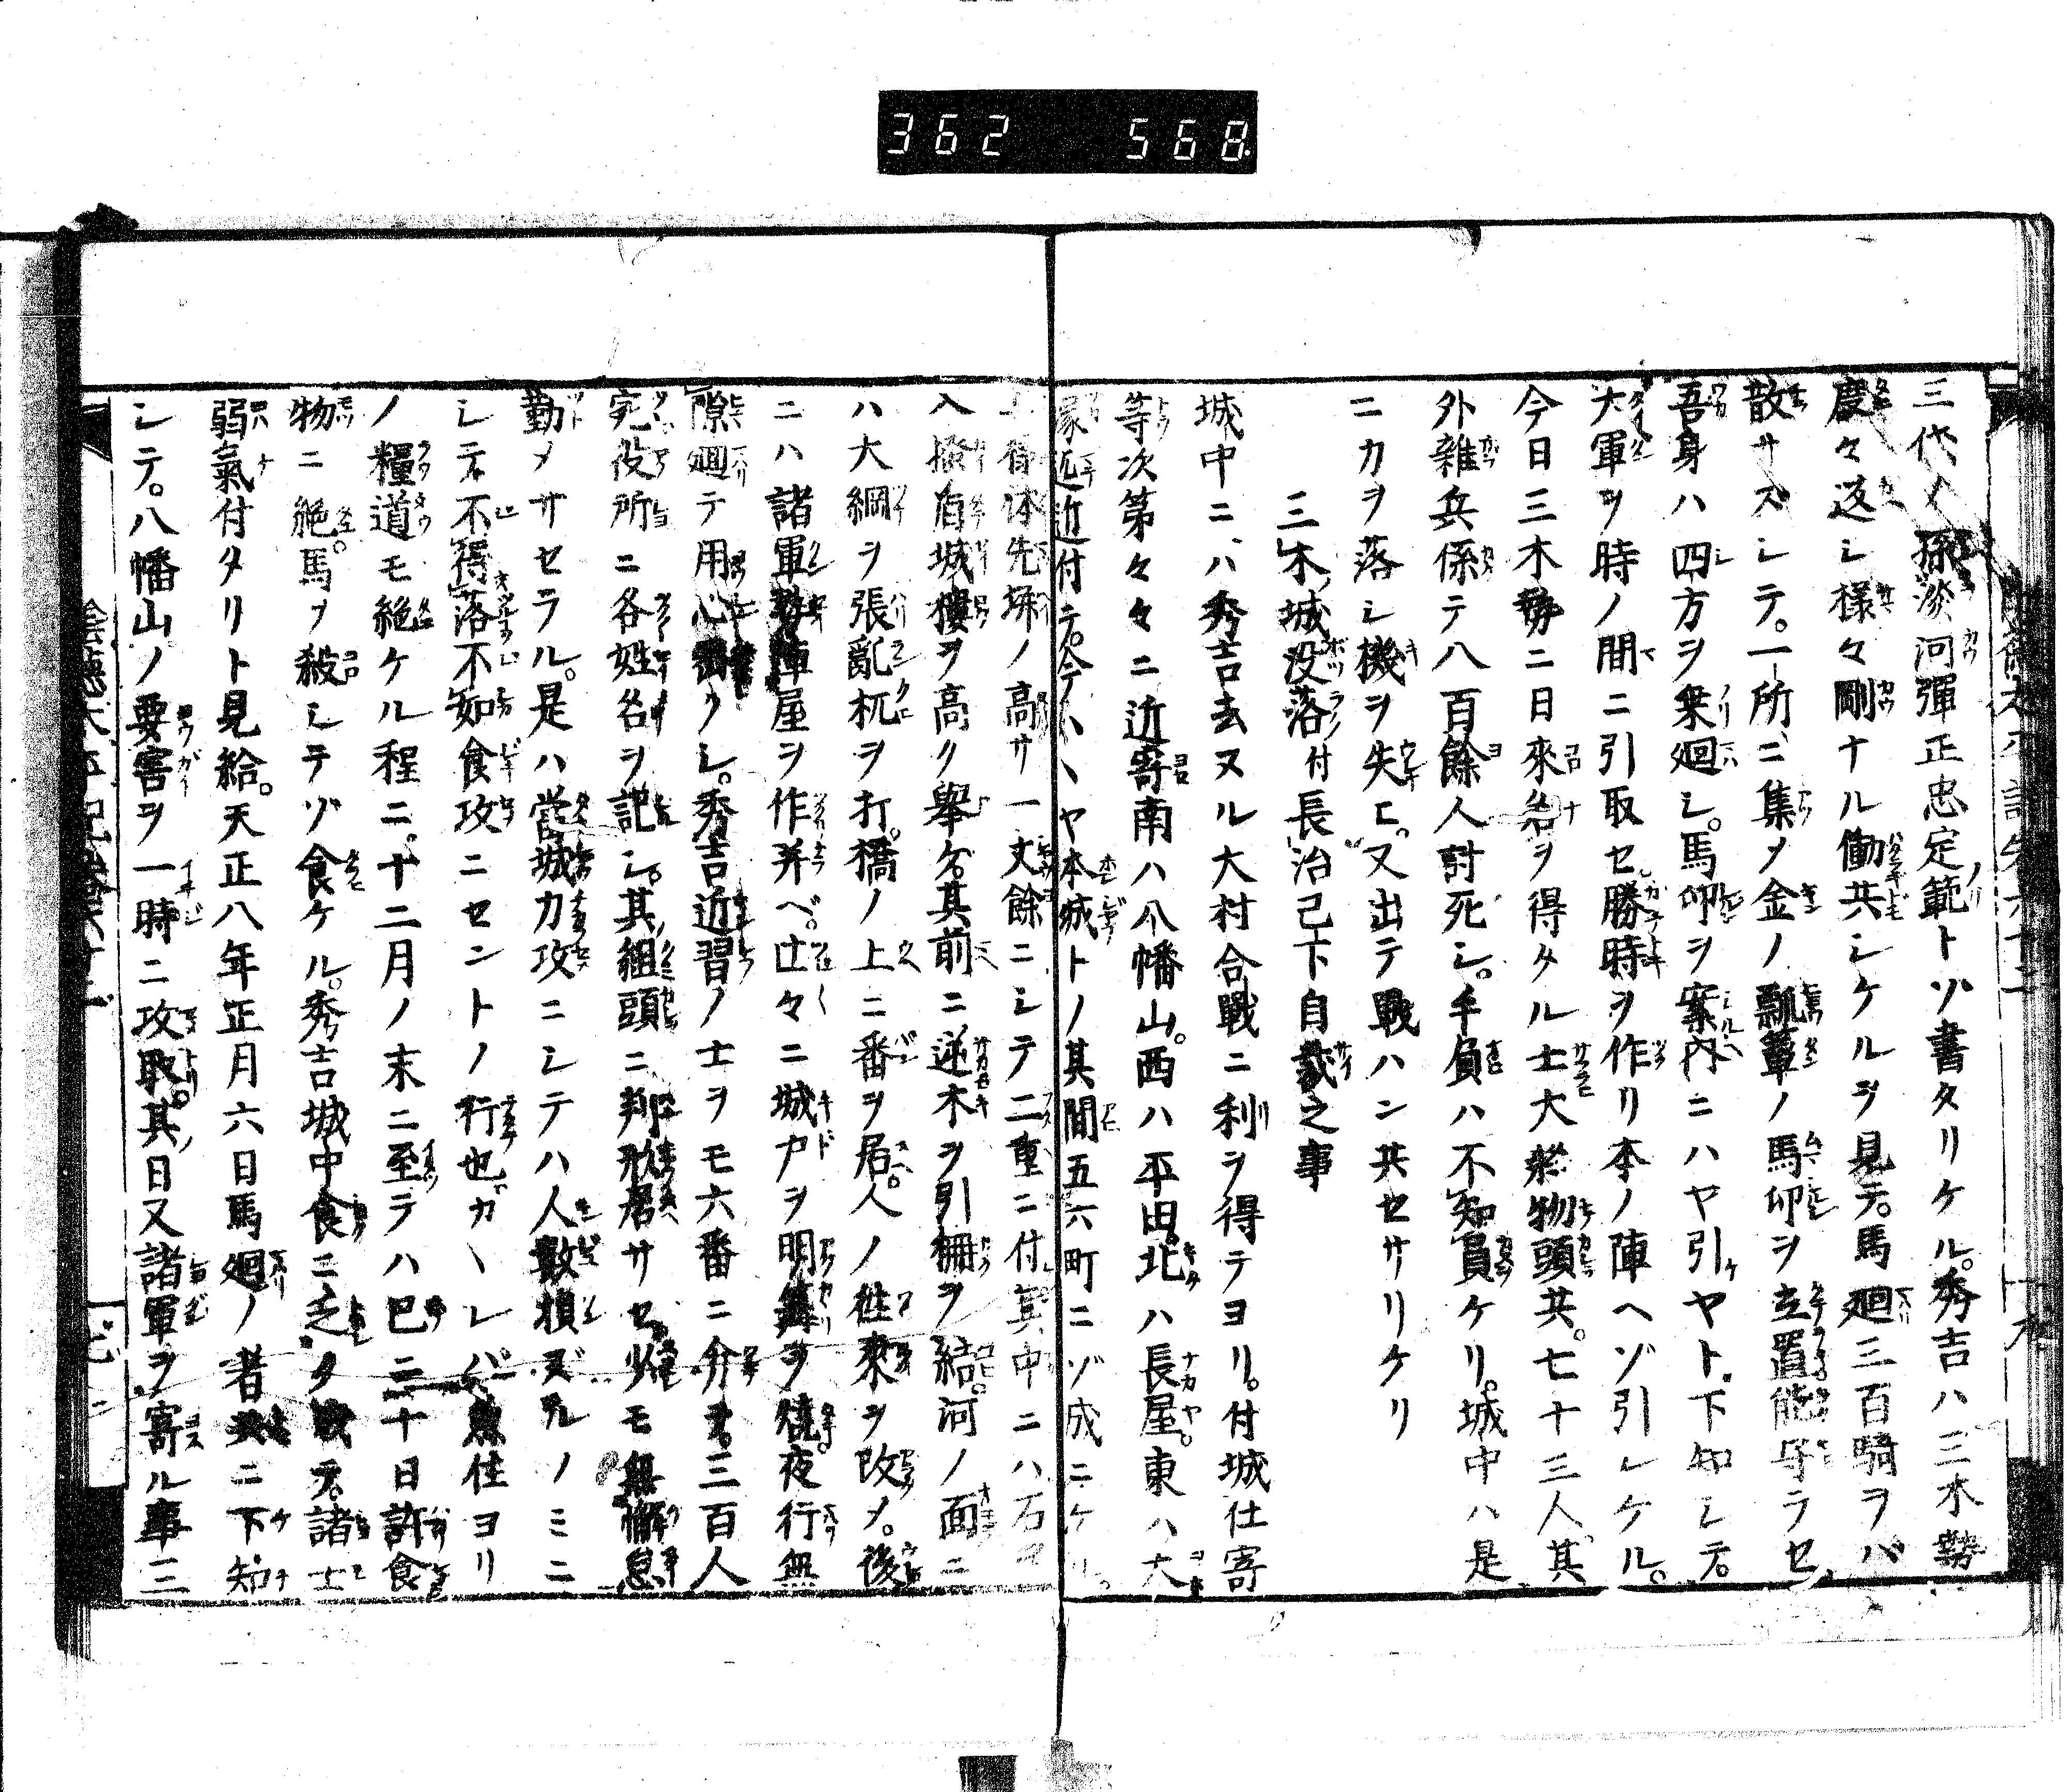 362 568
三代ノ孫淡河彈正忠定範トゾ書タリケル。秀吉ハ三木勢
度々返シ樣々剛ナル働共シケルヲ見テ。馬廻三百騎ヲバ
散サズシテ。一所ニ集メ金ノ瓢簞ノ馬印ヲ立置能守ラセ
吾身ハ四方ヲ乗廻シ。馬印ヲ案內ニハヤ引ヤト下知シテ。
大軍ヲ時ノ間ニ引取セ勝時ヲ作リ本ノ陣ヘゾ引レケル。
今日三木勢ニ日來名ヲ得タル士大將物頭共。七十三人其
外雜兵係テ八百餘人討死シ。手負ハ不知員ケリ。城中ハ是
ニカヲ落シ機ヲ失ヒ。又出テ戰ハン共セサリケリ
三木城没落付長治已下自裁之事
城中ニハ秀吉去ヌル大村合戰ニ利ヲ得テヨリ。付城仕寄
等次第々々ニ近寄南ハ八幡山。西ハ平田。北ハ長屋。東ハ大
塚迄近付テ。今ハヽヤ本城トノ其間五六町ニゾ成ニケル。
先塀ノ高サ一丈餘ニシテ二重ニ付其中ニハ石ヲ
入掻盾城樓ヲ高ク擧ケ。其前ニ逆木ヲ引柵ヲ結。河ノ面ニ
ハ大綱ヲ張亂杭ヲ打。橋ノ上ニ番ヲ居。人ノ往來ヲ改メ。後
ニハ諸軍勢陣屋ヲ作并ベ。辻々ニ城戸ヲ明篝ヲ燒。夜行無
隙廻テ用心嚴クシ。秀吉近習ノ士ヲモ六番ニ分チ。三百人
宛役所ニ各姓名ヲ記シ。其組頭ニ判形居サセ少モ無懈怠
勤メサセラル。是ハ當城力攻ニシテハ人數損ズルノミニ
シテ。不得落不知食攻ニセントノ行也。カヽレバ魚住ヨリ
ノ糧道モ絕ケル程ニ。十二月ノ末ニ至テハ巳ニ二十日許食
物ニ絕。馬ヲ殺シテゾ食ケル。秀吉城中食ニ乏ク成テ。諸士
弱氣付タリト見給。天正八年正月六日馬廻ノ者共ニ下知
シテ。八幡山ノ要害ヲ一時ニ攻取。其ノ日又諸軍ヲ寄ル事三